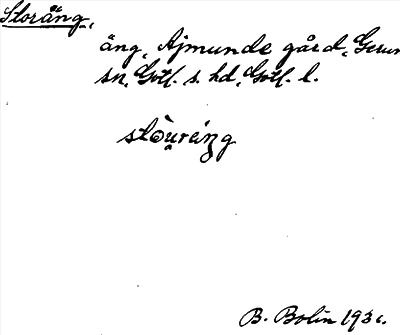 Storäng,
äng, Ajmunde gård, Gerum
sn, Gotl. s. hd, Gotl. l.
stòu̯räŋg
B. Bolin 193